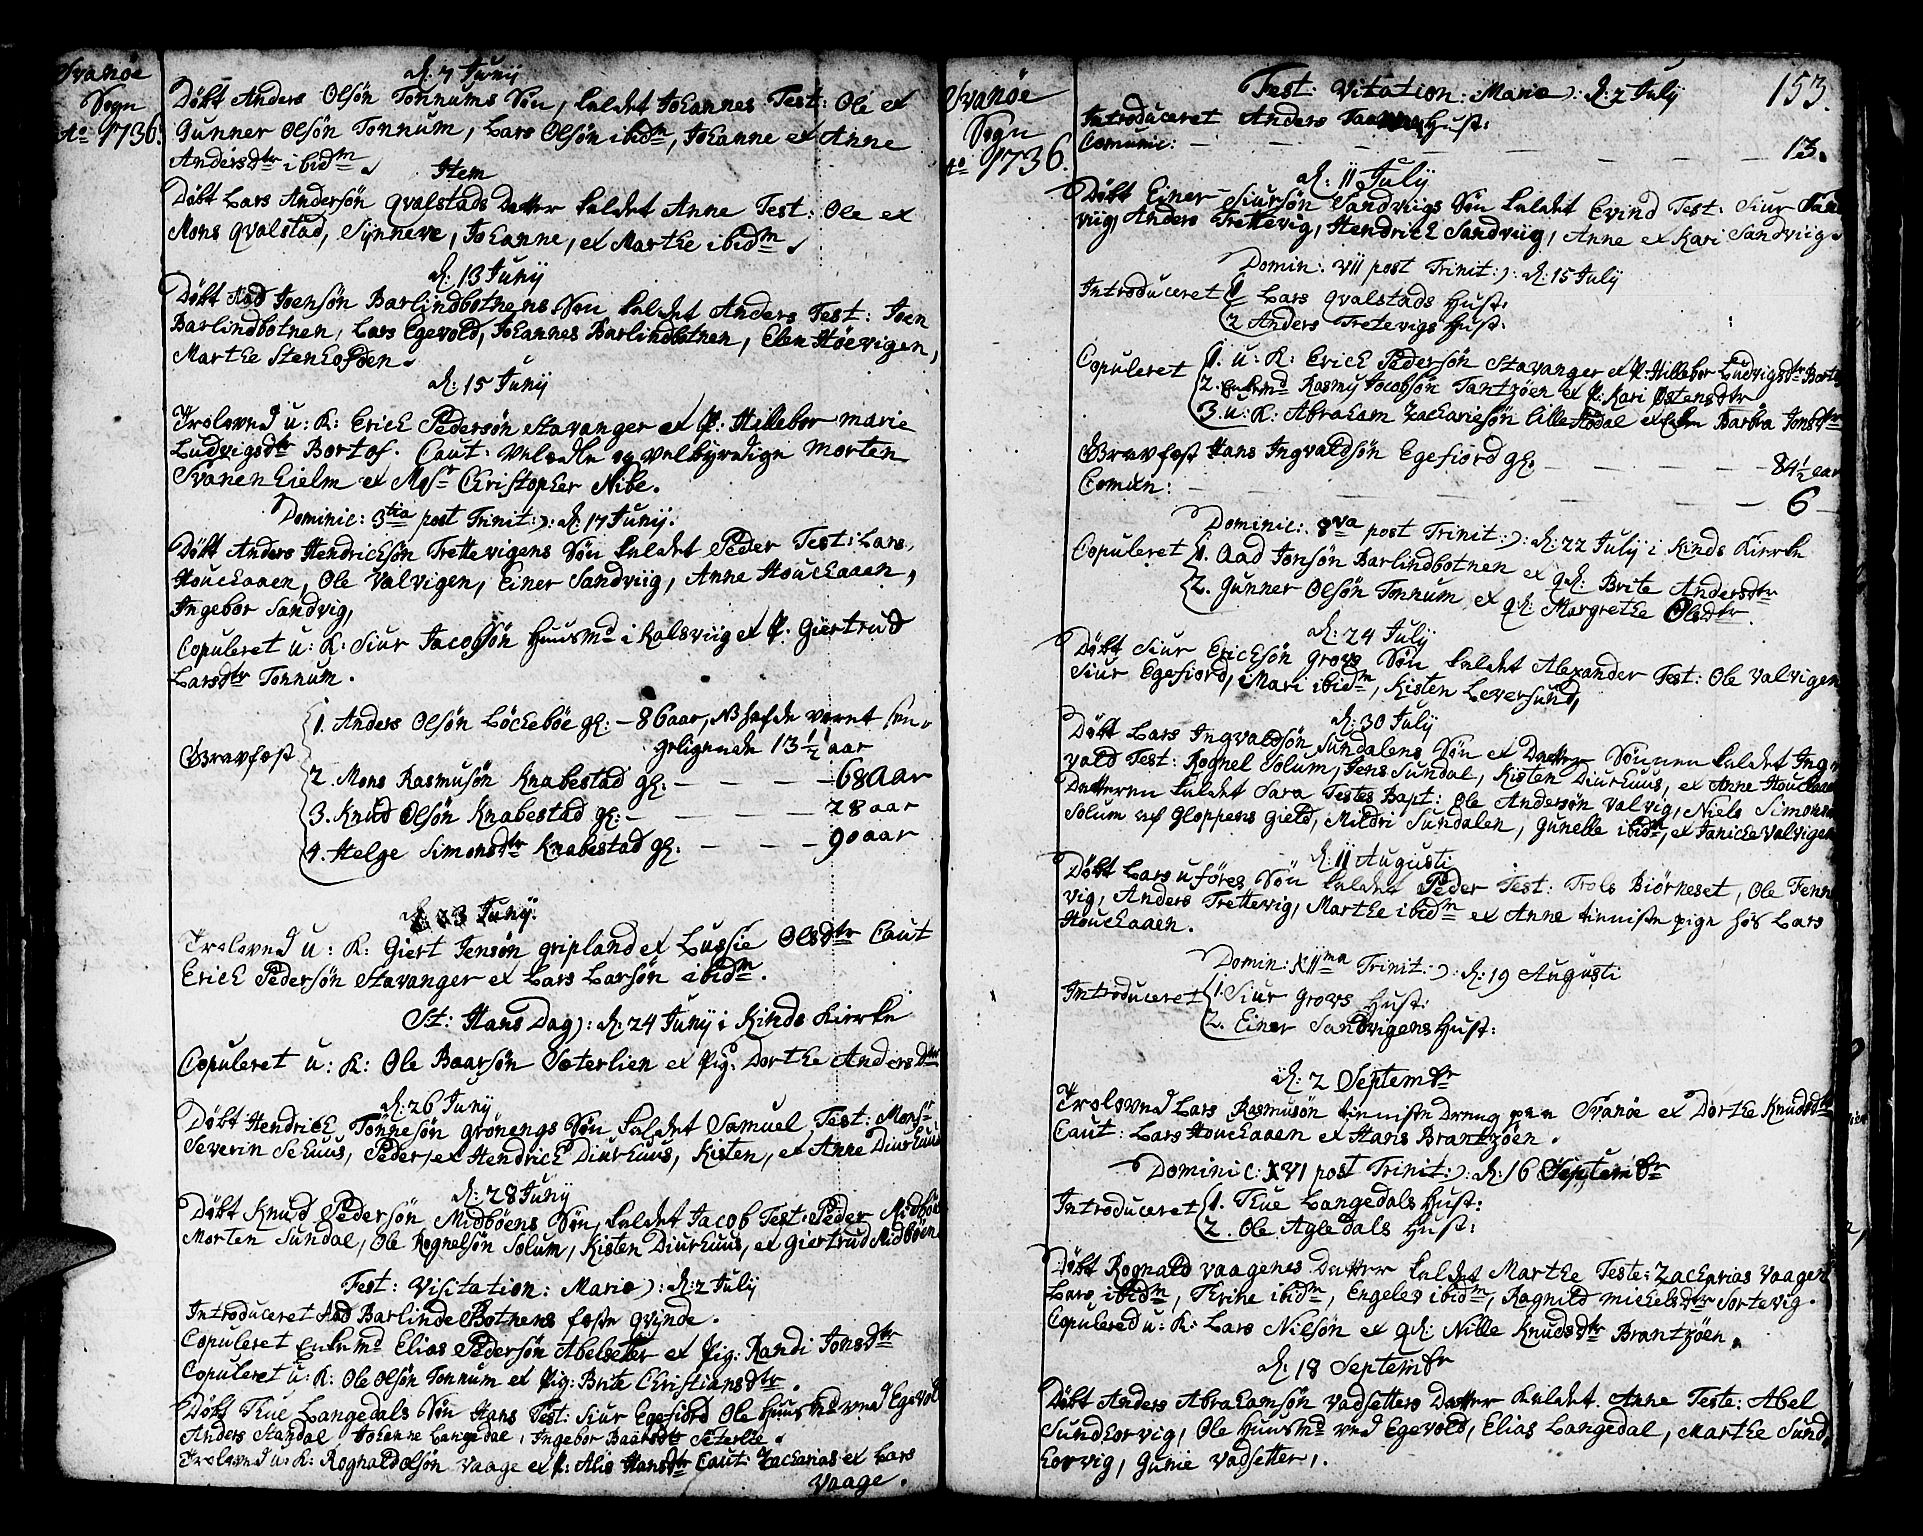 Svanöe
Sogn
Ao 1736.
d. 7 Junÿ
Döbt Anders Olsön Tonnums Sön, kaldet Johannes Test: Ole et
Gunner Olsön Tonnum, Lars Olsön ibidm, Johanne et Anne
Andersdtr ibidm.
Item
Döbt Lars Andersön Qvalstads Datter kaldet Anne Test: Ole et
Mons Qvalstad, Sÿnneve, Johanne, et Marthe ibidm.
d. 13 Junÿ
Döbt Aad Joensön Barlindbotnens Sön kaldet Anders Test: Joen
Barlindbotnen, Lars Egevold, Johannes Barlindbotnen, Elen Höevigen,
Marthe Stenhofden.
d. 15 Junÿ
Troloved u: K: Erich Pedersön Stavanger et P: Hillebor Marie
Ludvigsdtr Bortof. Caut: Velædle og Velbyrdige Morten
Svanenhielm et Msr Christopher Nibe.
Dominic: 3tia post Trinit: ): d. 17 Junÿ.
Döbt Anders Hendrichsön Trettevigens Sön kaldet Peder Test: Lars
Houchaaen, Ole Valvigen, Einer Sandviig, Anne Houchaaen,
Ingebor Sandvig,
Copuleret u: K: Siur Jacobsön Huusmd i Kalsviig et P. Giertrud
Larsdtr Tonnum.
Gravfæst
1. Anders Olsön Löcheböe gl: - 86 aar, NB hafde været sen-
geligende 13½ aar
2. Mons Rasmusön Knabestad gl: - - - - 68 aar
3. Knud Olsön Knabestad gl: - - - - 28 aar
4. Helge Simonsdtr Knabestad gl: - - - 90 aar
d. 23 Junÿ.
Troloved u: K: Giert Jensön Gripland et Lussie Olsdtr Caut
Erich Pedersön Stavanger et Lars Larsön ibidm.
St: Hans Dag ): d. 24 Junÿ i Kinds Kierke
Copuleret u: K: Ole Baarsön Sæterlien et Pig: Dorthe Andersdtr
d. 26 Junÿ
Döbt Hendrich Tönnesön Grönengs Sön kaldet Samuel Test: Monsr
Severin Sehuus, Peder, et Hendrich Diurhuus, Kisten, et Anne Diurhuus
d. 28 Junÿ
Döbt Knud Pedersön Midböens Sön, kaldet Jacob Test: Peder Midböe
Morten Sundal, Ole Rognelsön Solum, Kisten Diurhuus, et Giertrud Midböen
Fest: Visitation: Mariæ ): d. 2 Julÿ
Introduceret Aad Barlinde Botnens fæste Qvinde.
Copuleret Enkemd Elias Pedersön Abelseter et Pig: Randi Jonsdtr
Copuleret u: K: Ole Olsön Tonnum et Pig: Brite Christiansdtr.
Döbt Thue Langedals Sön Hans Test: Siur Egefiord Ole Huusmd ved Egevold
Anders Standal, Johanne Langedal, Ingebor Baarsdtr Seterlie.
Troloved u: K: Rognald Olsön Vaage et P: Alis Hansdtr Caut: Zacharias et Lars
Vaage.
Svanöe
Sogn
Ao 1736.
153.
Fest: Vitation: Mariæ ): d. 2 Julÿ
Introduceret Anders Hust:
Comunic: - - - - - - 13.
d. 11 Julÿ
Döbt Einer Siursön Sandviigs Sön kaldet Evind Test: Siur
viig, Anders Trettevig, Hendrich Sandviig, Anne et Kari Sandviig.
Domin: VII post Trinit: ): d. 15 Julÿ
Introduceret
1 Lars Qvalstads Hust:
2 Anders Tretevigs Hust:
Copuleret
1. u: K: Erich Pedersön Stavanger et P: Hillebor Ludvigsdtr
2. Enkemd Rasmus Jacobsön Tantzöen et P: Kari Östensdtr
3. u: K: Abraham Zachariesön Lille Hödal et Barbra Jonsdtr
Gravfæst Hans Ingvaldsön Egefiord gl: - - - - 84½ aar
Comun: - - - - - - 6
Dominic: 8va post Trinit: ): d. 22 Julÿ i Kinds Kierke
Copuleret
1. Aad Jonsön Barlindbotnen et qd: Brite Andersdtr
2. Gunner Olsön Tonnum et qd: Margrethe Olsdtr.
d. 24 Julÿ
Döbt Siur Erichsön Grovs Sön kaldet Alexander Test: Ole Valvigen
Siur Egefiord, Mari ibidm, Kisten Leversund,
d. 30 Julÿ
Döbt Lars Ingvaldsön Sundalens Sön et Datter Sönnen kaldet Ing-
vald Test: Rognel Solum, Jens Sundal, Kisten Diurhuus, et Anne Houchaaen
Datteren kaldet Sara Testes Bapt: Ole Andersön Valvig, Niels Simonsön
Solum af Gloppens Gield, Mildri Sundalen, Gunelle ibidm, et Janiche Valvigen
d. 11 Augusti
Döbt Lars uföres Sön kaldet Peder Test: Trols Biörneset, Ole
vig, Anders Trettevig, Marthe ibidm et Anne tieniste pige hos Lars
Houchaaen.
Domin: XIIma Trinit: ): d. 19 Augusti
Introduceret
1. Siur Grovs Hust:
2. Einer Sandvigens Hust:
d. 2 Septembr
Troloved Lars Rasmusön tieniste Dreng paa Svanöe et Dorthe Knudsdtr
Caut: Lars Houchaaen et Hans Brantzöen.
Dominic: XVI post Trinit: ): d. 16 Septembr
Introduceret
1. Thue Langedals Hust:
2. Ole Agledals Hust:
Döbt Rognald Vaagenes Datter kaldet Marthe Teste: Zacharias Vaagen
Lars ibidm, Thrine ibidm, Engelev ibidm, Ragnild Michelsdtr Sortevig.
Copulered u: K: Lars Nilsön et qd: Nille Knudsdtr Brantzöen.
d. 18 Septembr
Döbt Anders Abrahamsön Vadsetters Datter kaldet Anne Teste: Abel
Sundhorvig, Ole Huusmd ved Egevold, Elias Langedal, Marthe Sund
horvig, Gunie Vadsetter,.